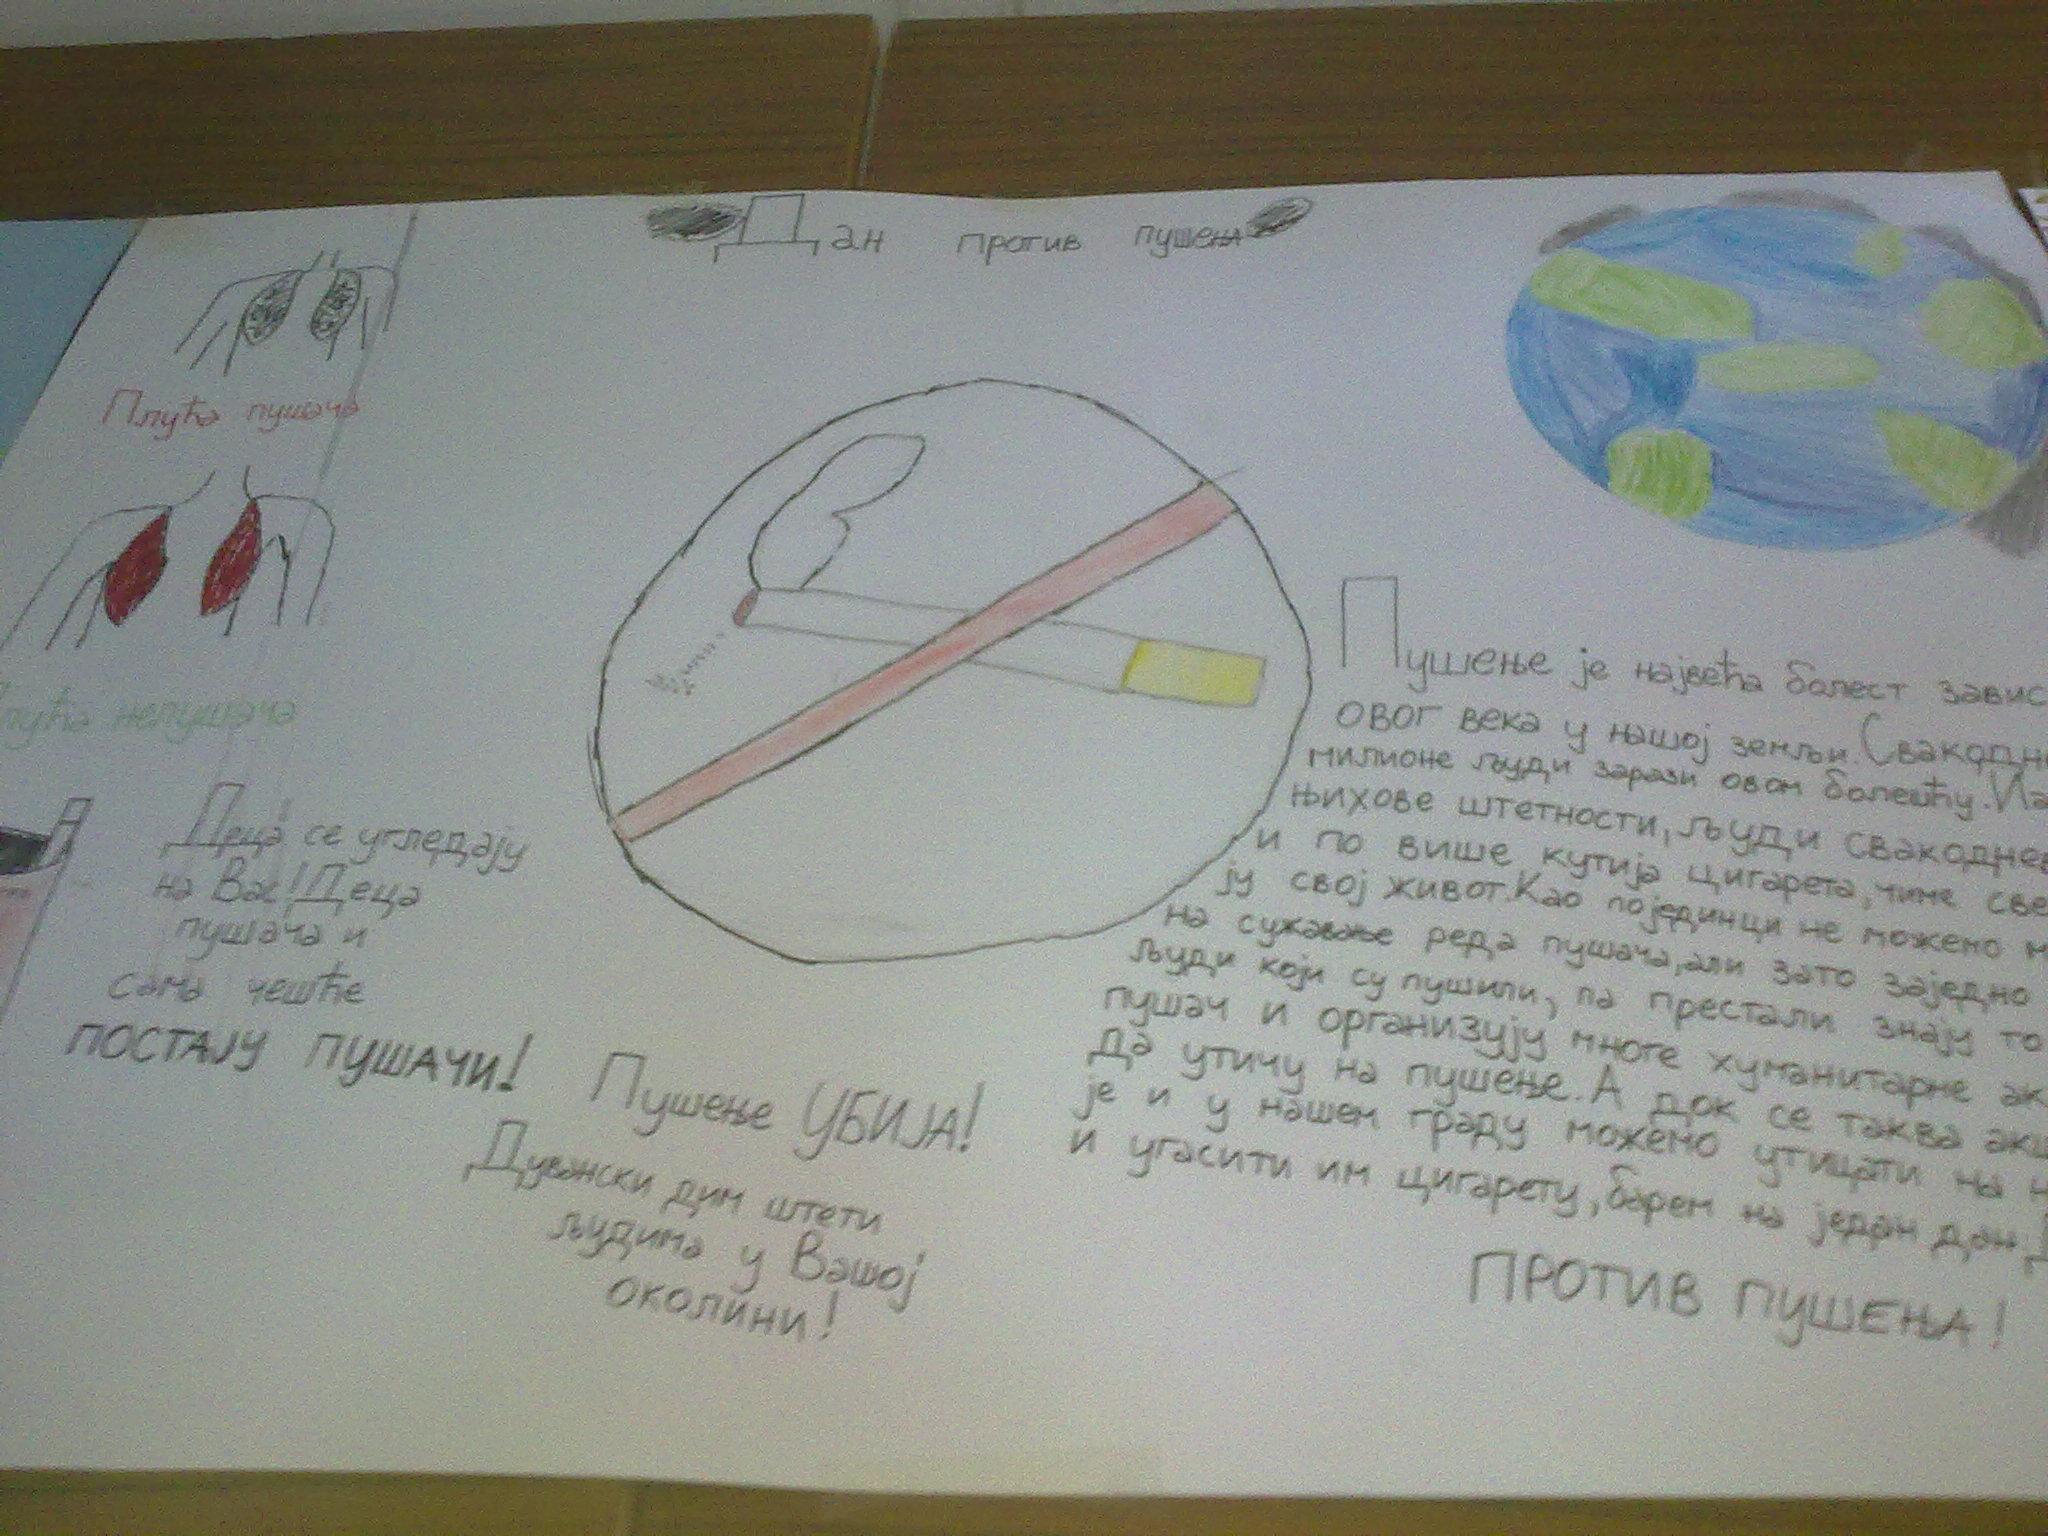 Дан против пушења
Плућа пушача
Плућа непушача
Деца се угледају
на Вас! Деца
пушача и
сама чешће
ПОСТАЈУ ПУШАЧИ!
Пушење УБИЈА!
Дувански дим штети
људима у Вашој
ОКОЛИНИ!
Пушење је највећа болест завис
овог века у нашој земљи. Свакодне
милионе људи зарази овом болешћу. Иа
њихове штетности, људи свакоднев
и по више кутија цигарета, чиме све
ју свој живот. Као појединци не можемо
на сужавање реда пушача, али зато заједно
људи који су пушили, па престали знају то
пушач и организују многе хуманитарне ак
да утичу на пушење. А док се таква акц
је и у нашем граду можемо утицати на
и угасити им цигарету, барем на један дан
ПРОТИВ ПУШЕЊА!